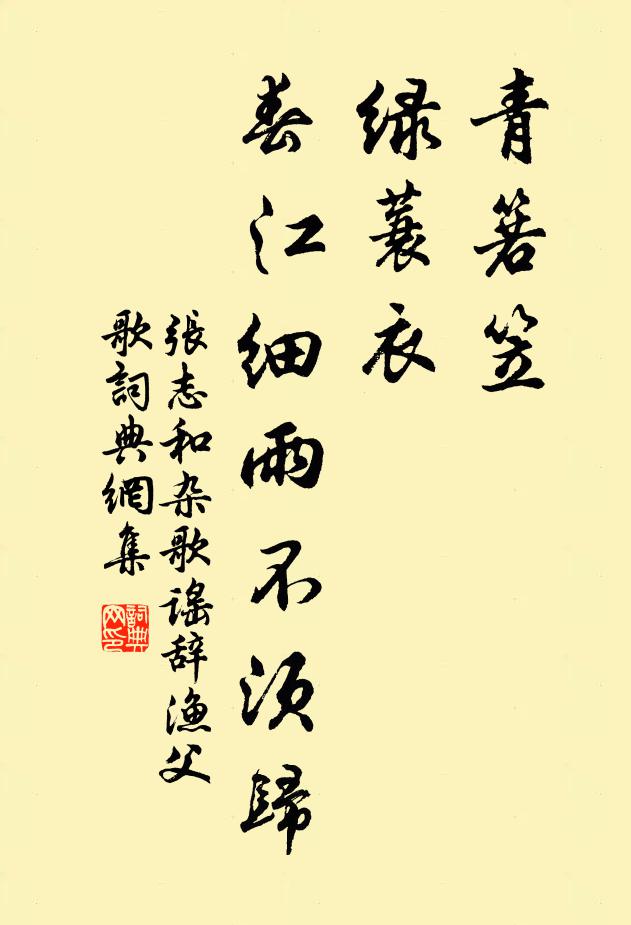 青箬笠
绿蓑衣
春江细雨不须歸
張志和杂歌谣辞漁父
歌詞典網集
詞典網印